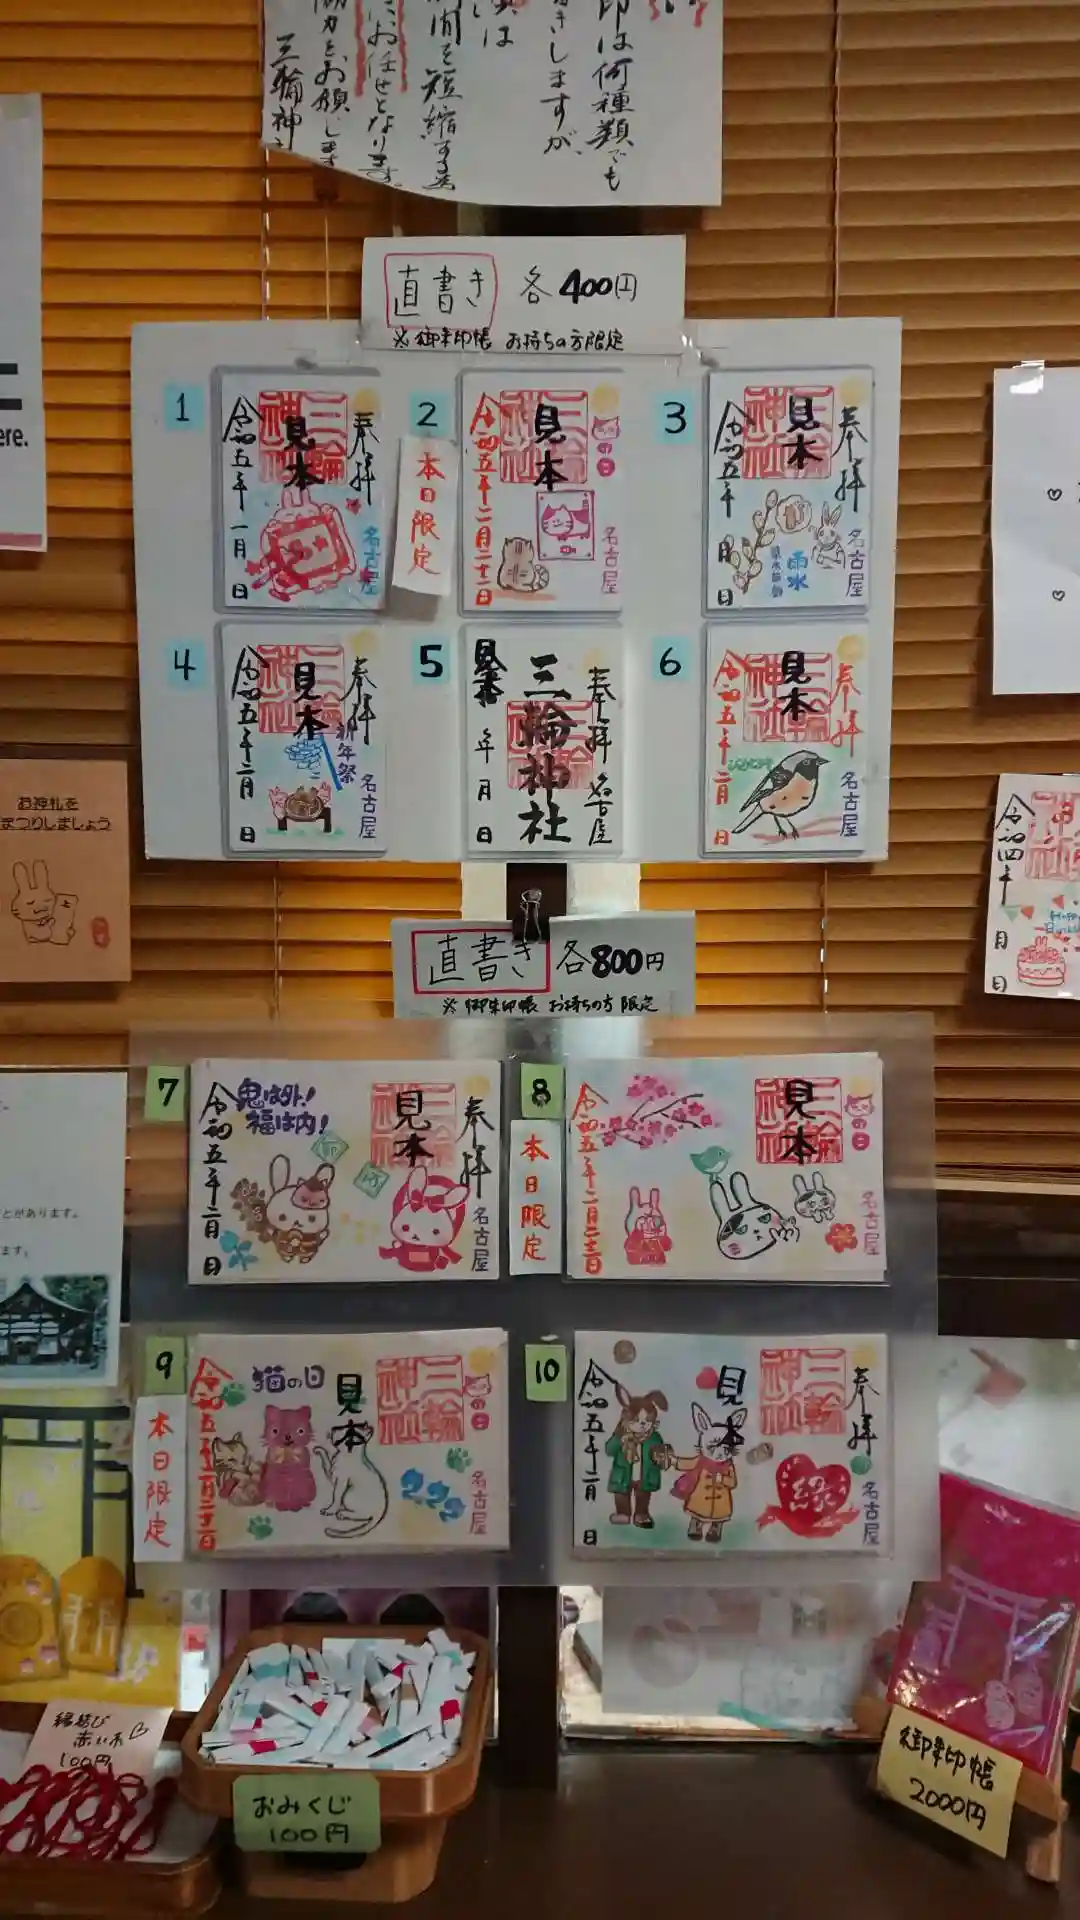 印は何種類でも
きしますが、
間を短縮する為
にお任せとなります。
協力をお願します
三輪神社
直書き 各400円
※御朱印帳 お持ちの方限定
1
奉拝
三輪神社
見本
令和五年一月 日
名古屋
2
本日限定
の日
三輪神社
見本
令和五年二月二十二日
名古屋
3
奉拝
三輪神社
見本
令和五年 月 日
雨水
名古屋
4
奉拝
三輪神社
見本
令和五年二月 日
祈年祭
名古屋
5
奉拝 名古屋
三輪神社
見本
年 月 日
6
奉拝
三輪神社
見本
令和五年二月 日
名古屋
直書き 各800円
※御朱印帳 お持ちの方限定
7
奉拝
三輪神社
見本
鬼は外!
福は内!
令和五年二月 日
名古屋
8
本日限定
の日
三輪神社
見本
令和五年二月二十二日
名古屋
9
本日限定
猫の日
の日
三輪神社
見本
令和五年二月二十二日
222
名古屋
10
奉拝
三輪神社
見本
縁
令和五年二月 日
名古屋
ere.
お神札を
まつりしましょう
令和四年 月 日
とがあります。
ます。
縁結び
赤い糸
100円
おみくじ
100円
御朱印帳
2000円